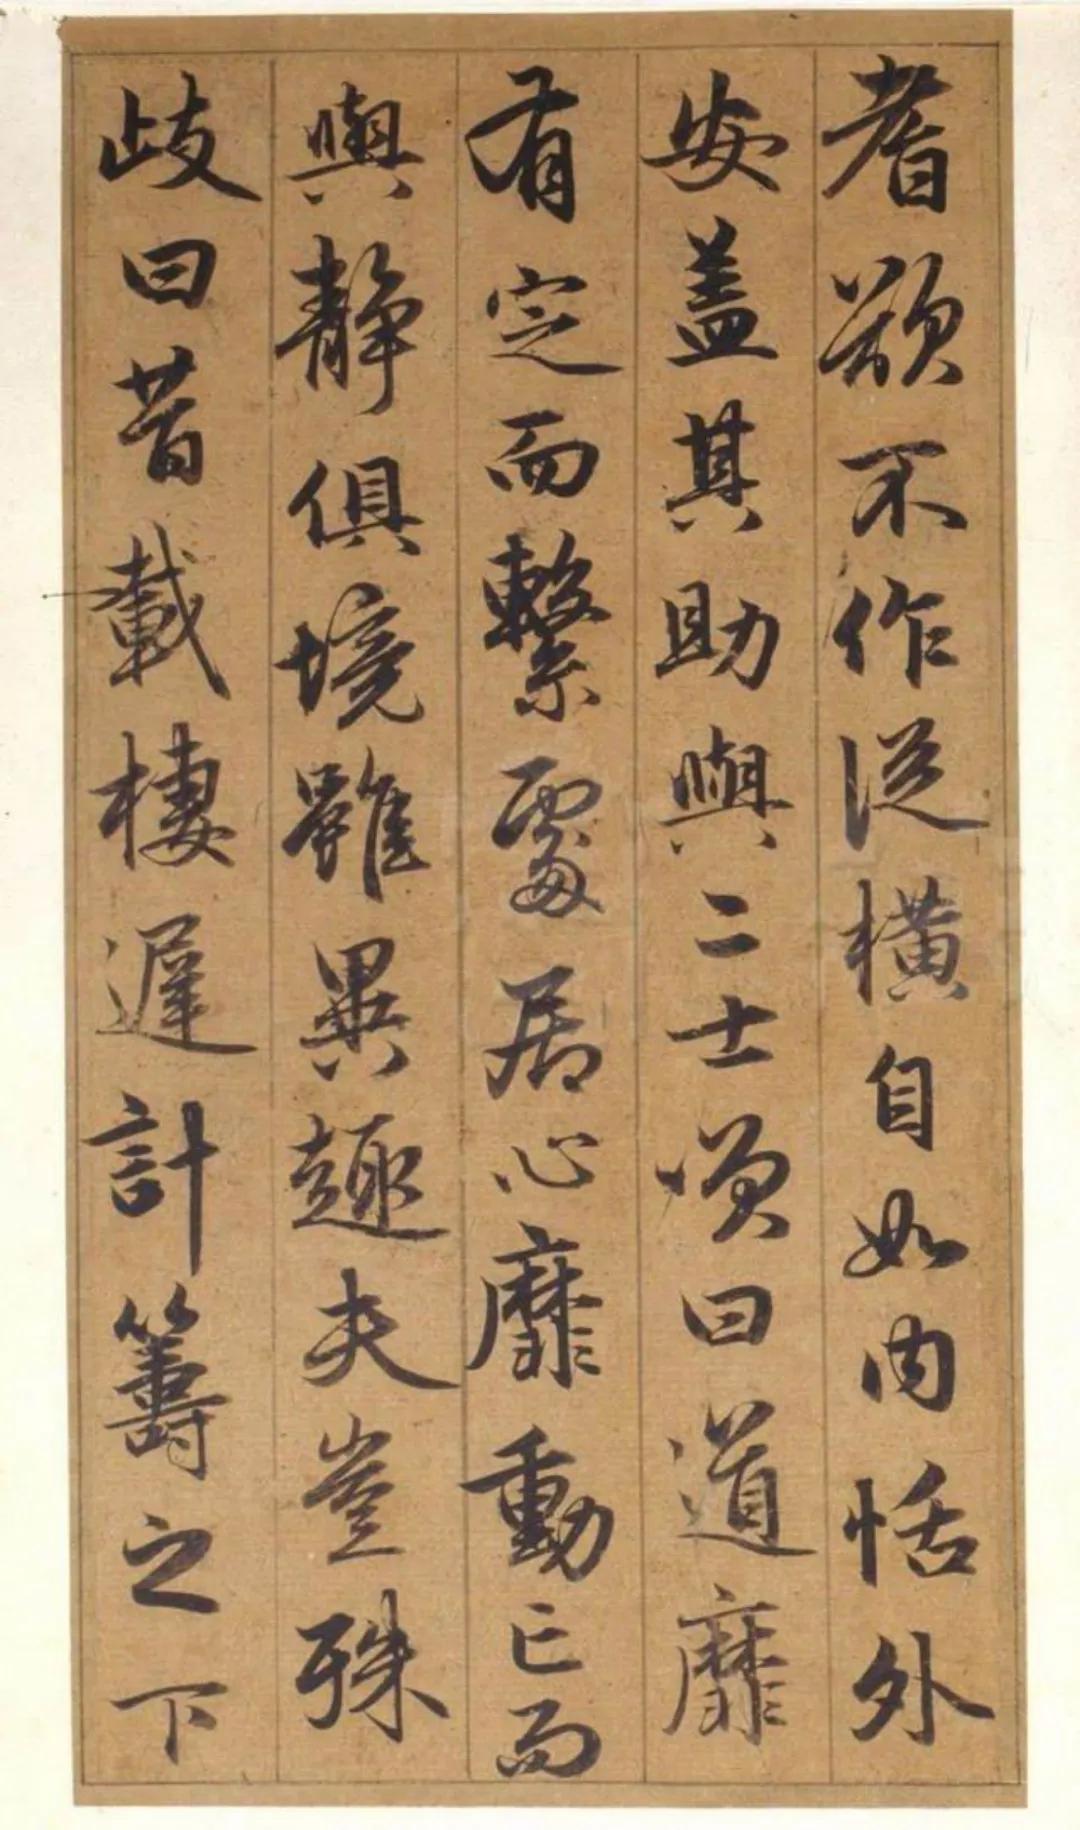 耆欲不作從橫自如内恬外
安蓋其助與二士頌曰道靡
有定而繫處居心靡動已而
與靜俱境雖異趣夫豈殊
歧曰昔載棲遲計籌之下